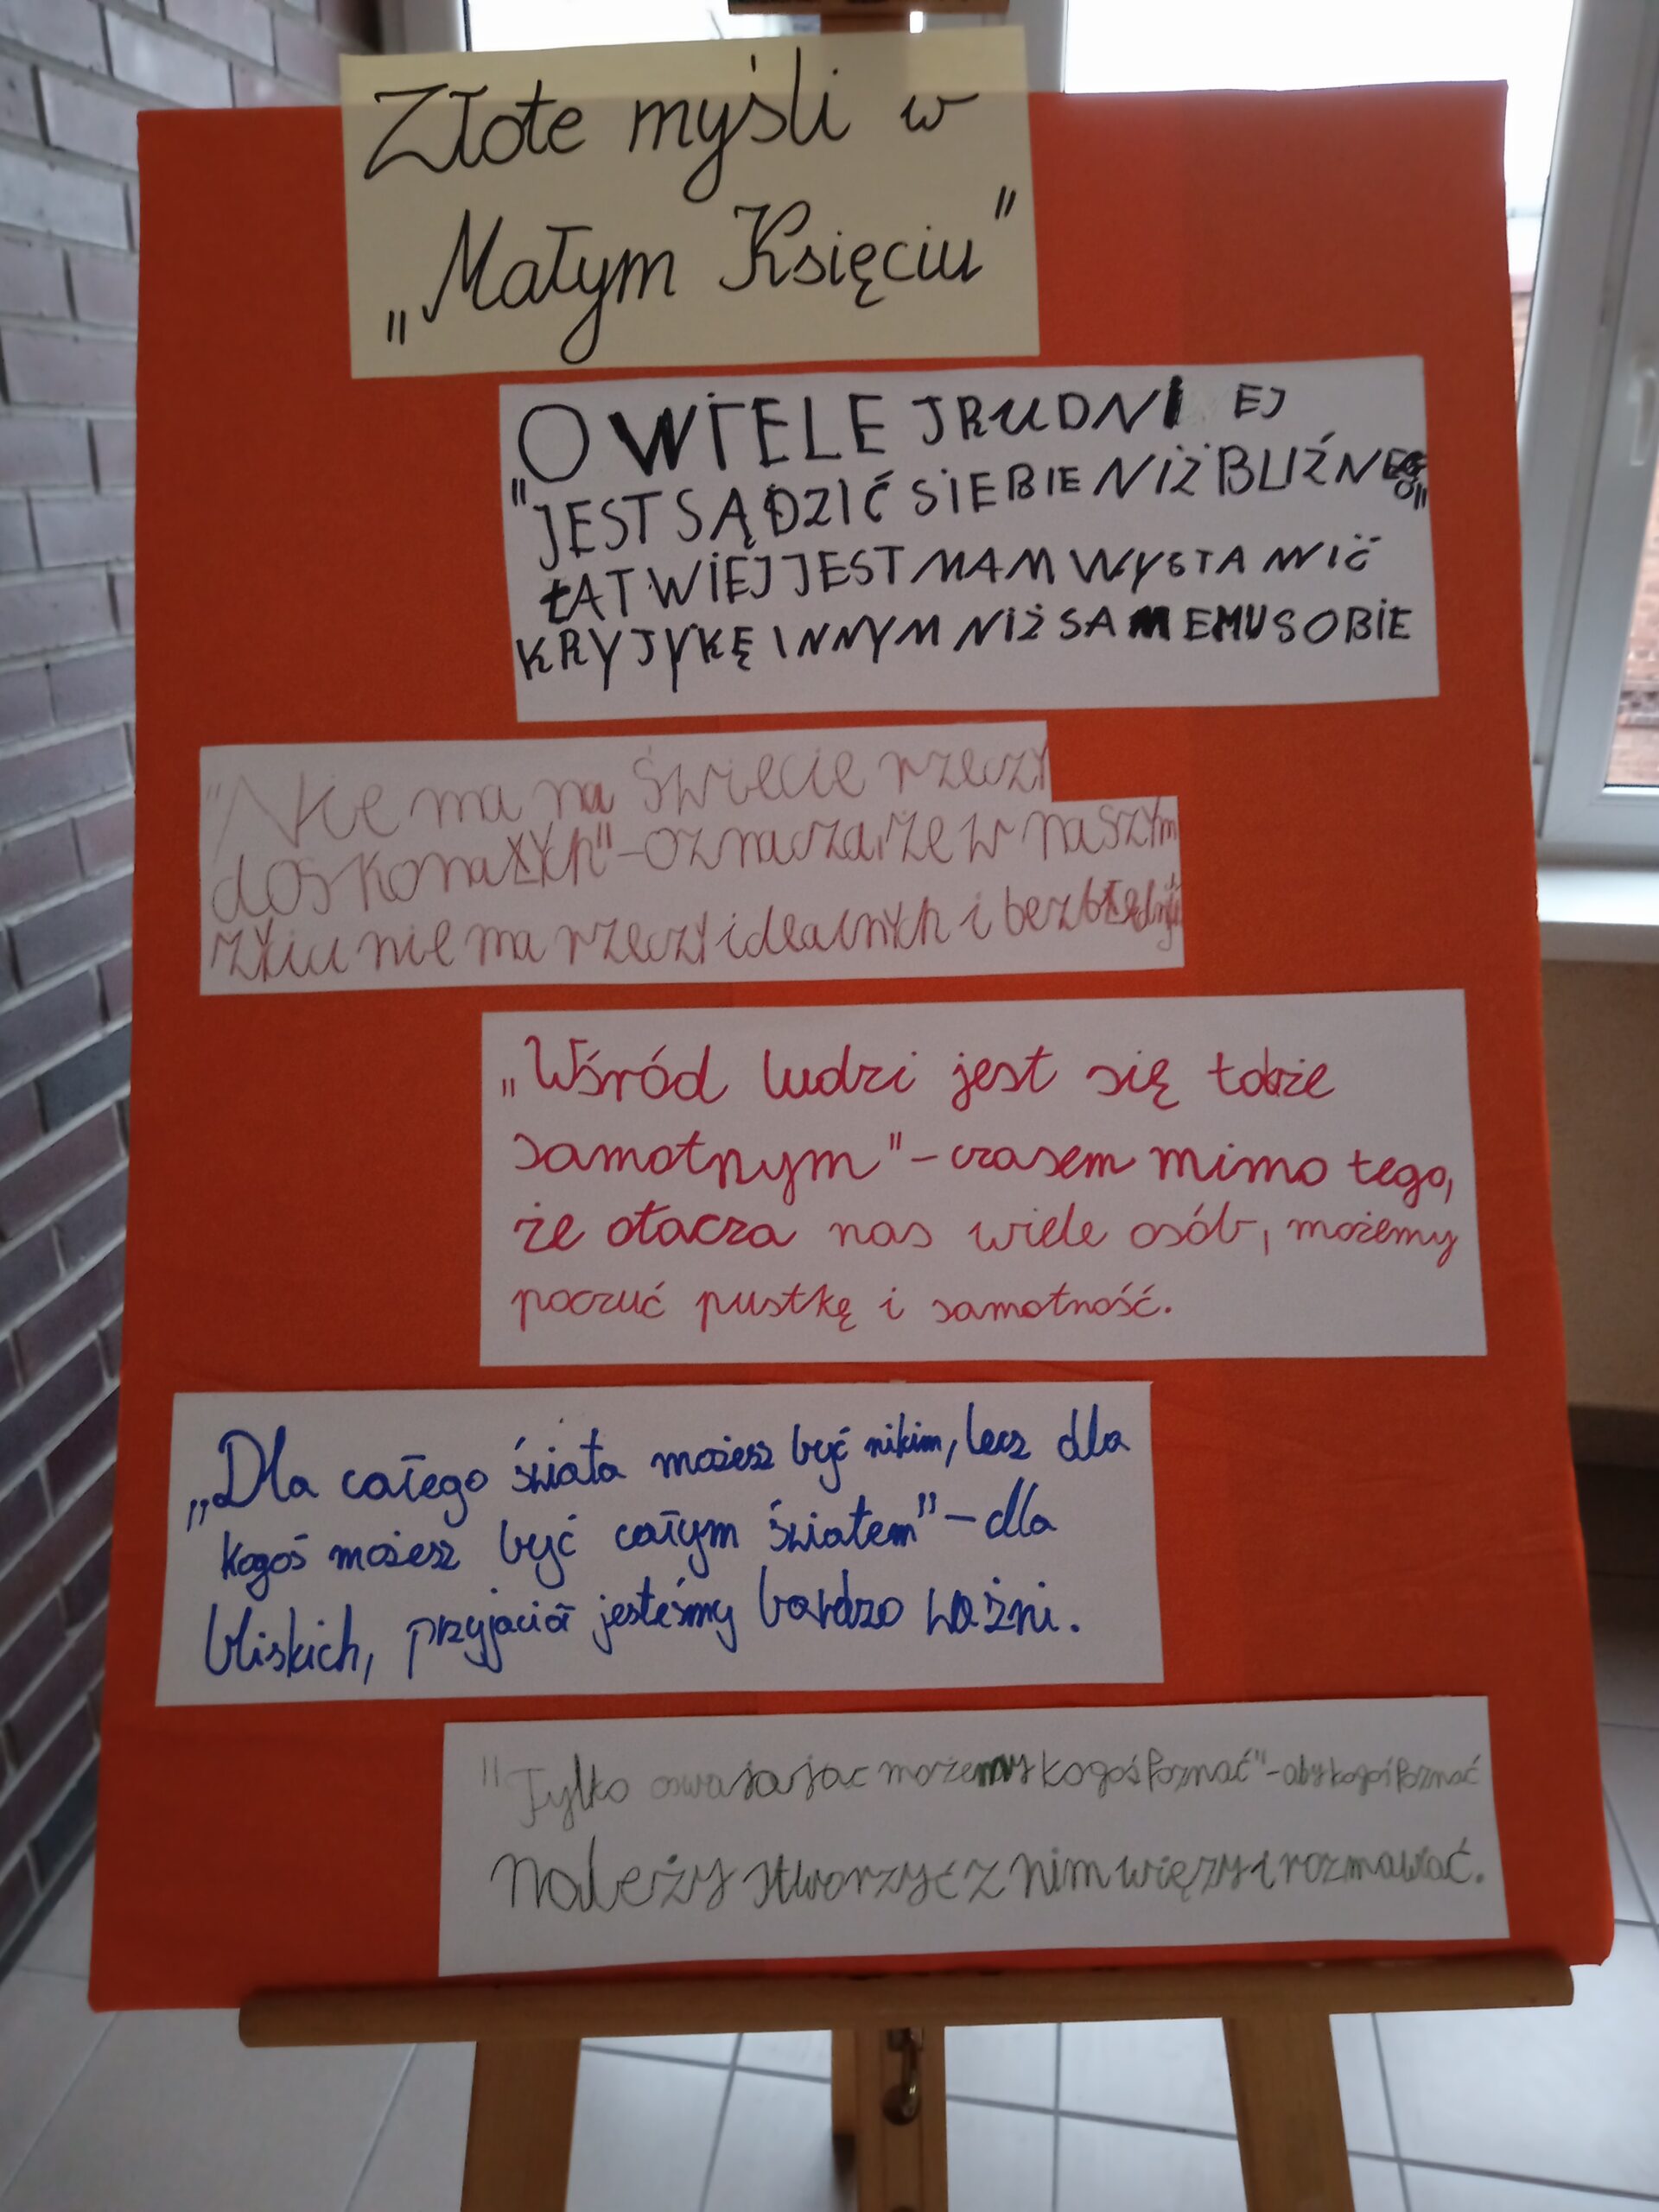 Złote myśli w
„Małym Księciu"
O WIELE TRUDNIEJ
"JEST SĄDZIĆ SIEBIE NIŻ BLIŹNEGO"
ŁATWIEJ JEST NAM WYSTAWIĆ
KRYTYKĘ INNYM NIŻ SAMEMU SOBIE
"Nie ma na świecie rzeczy
doskonałych" – oznacza, że w naszym
życiu nie ma rzeczy idealnych i bezbłędnych
„Wśród ludzi jest się także
samotnym" – czasem mimo tego,
że otacza nas wiele osób, możemy
poczuć pustkę i samotność.
„Dla całego świata możesz być nikim, lecz dla
kogoś możesz być całym światem" – dla
bliskich, przyjaciół jesteśmy bardzo ważni.
"Tylko oswajajac możemy kogoś Poznać" – aby kogoś Poznać
należy stworzyć z nim więzy i rozmawiać.